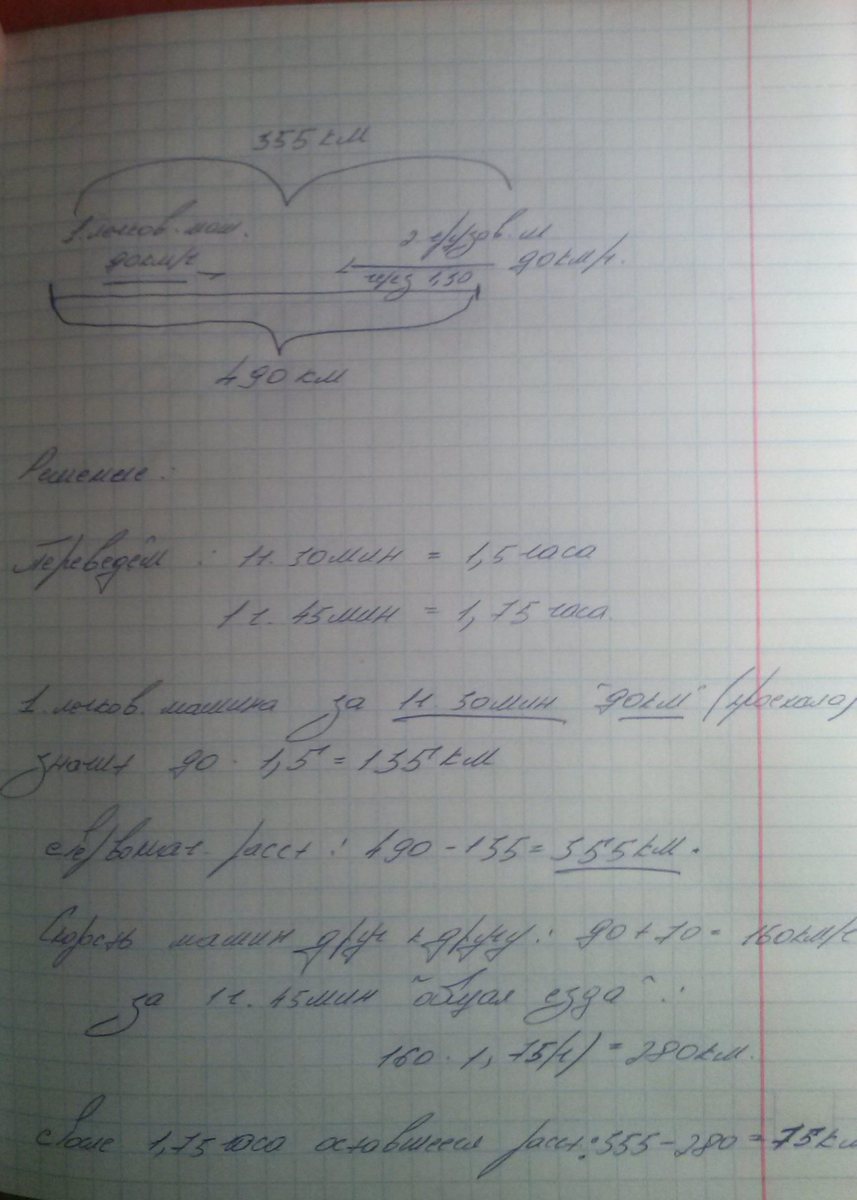 355 км
1 легков. маш. 2 грузов. м
90 км/ч 90 км/ч.
через 1,30
490 км
Решение:
Переведём : 1ч. 30 мин = 1,5 часа
1 ч. 45 мин = 1,75 часа
1. легков. машина за 1ч. 30мин "90км" (проехала)
значит 90 · 1,5 = 135 км
расст : 490 - 135 = 355 км.
Скорость машин друг к другу : 90 + 70 = 160 км/ч
за 1 ч. 45 мин "общая езда" :
160 · 1, 75(ч) = 280 км.
1,75 часа оставшееся расст: 355 - 280 = 75 км